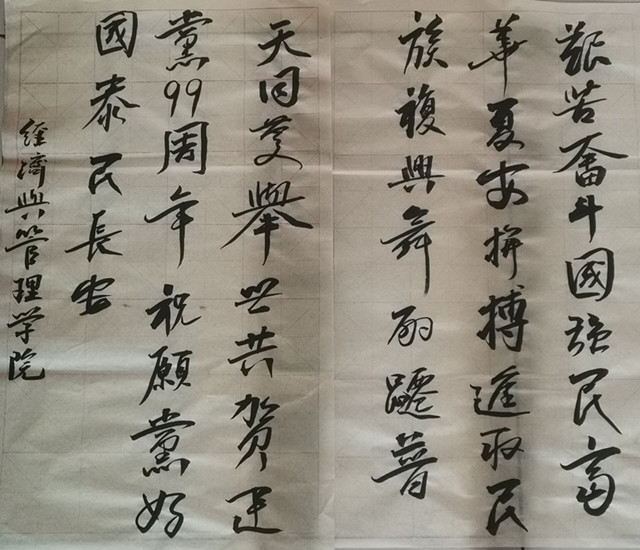 艱苦奮斗國強民富
華夏安拼搏進取民
族複興舞翩躚普
天同慶舉世共賀建
黨99周年祝願黨好
國泰民長安
經濟與管理学院